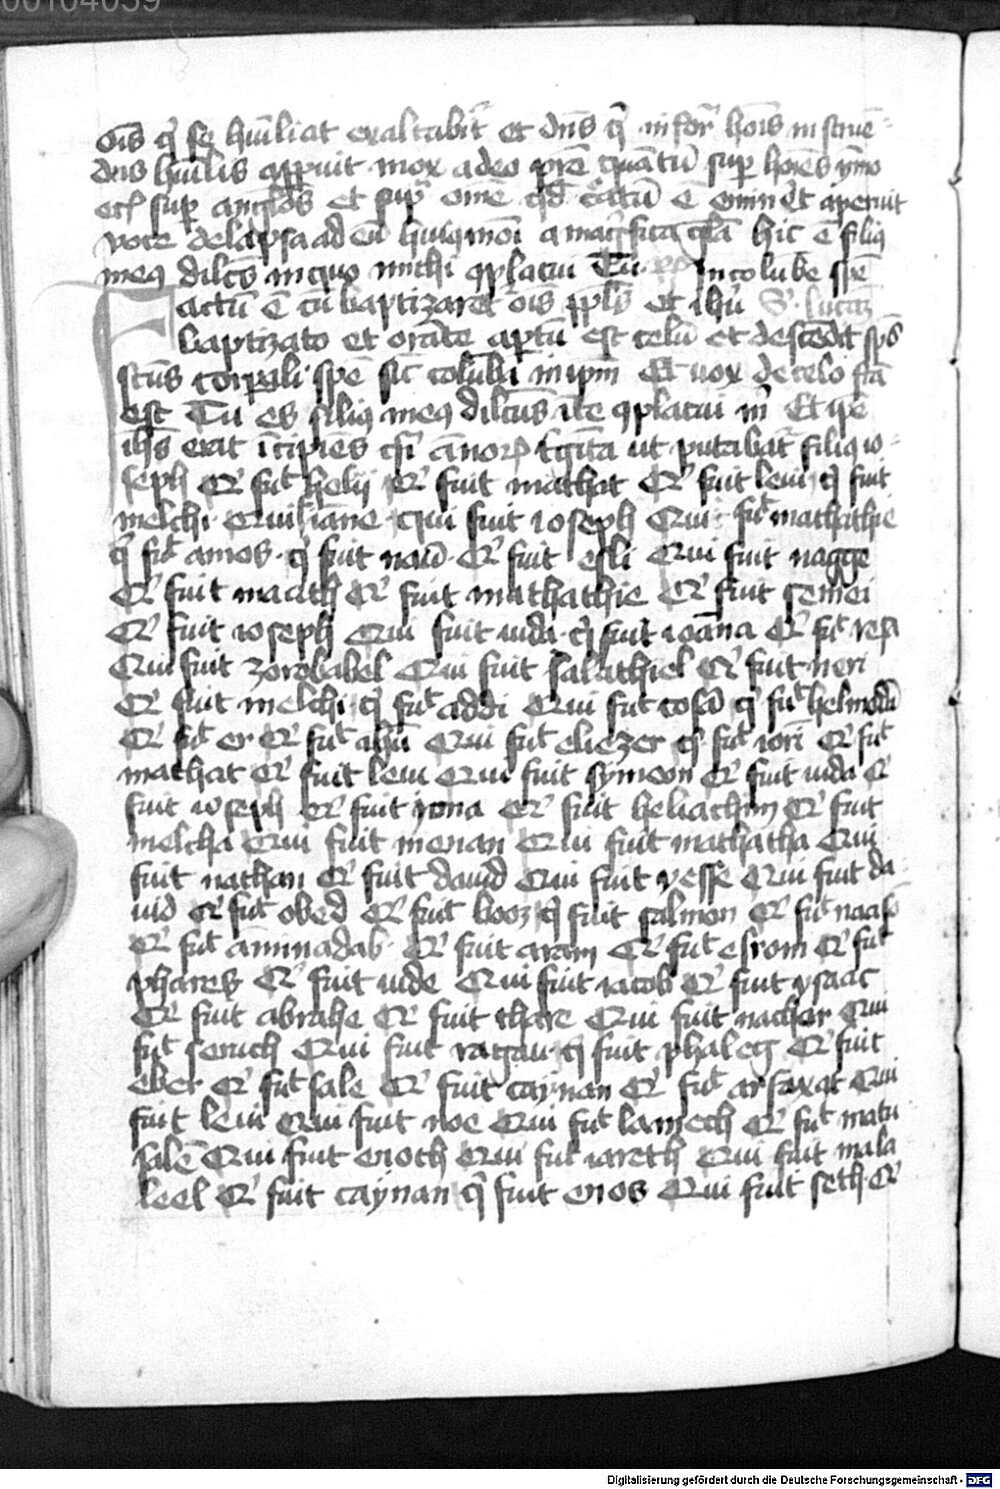 00104059
oīs q̄ se hūiliat exaltabit̄ et dn̄s q̄ in for̄ hoīs
dn̄s hūilis appuit mox a deo pr̄e quātū sup hoīes ymo
sup angl̄os et sup om̄e qd̄ c̄atū ē eminet aperuit
voce delapsa ad eū huiqmōi a mag̃fica gl̄a hic ē filiq
meq dilc̄s in quo michi qplacui Tu in colūbe spē
Factū ē cū baptizaret oīs ppl̄s et ihū S. lucaz
baptizato et orāte aptū est celū et descēdit sp̄s
sc̄tus corpali spē sic̄ colūba in ip̄m Et vox de celo fc̄a
est Tu es filiq meq dilc̄us ī te qplacui m̄ Et ip̄e
ih̄s erat īcipiēs q̄si ānorꝝ t̄gīta ut putabat̄ filiq io-
seph Qi fu͛t helij Qi fuit mathat Qi fuit leui q̄ fuit
melchi Qui fuit iāne qui fuit ioseph Qui fu͛t mathathie
q̄ fu͛t amos q̄ fuit naū Qi fuit esli Qui fuit nagge
Qi fuit maath Qi fuit mathathie Qi fuit semei
Qi fuit ioseph Qui fuit iuda q̄ fuit ioāna Qi fu͛t resa
Qui fuit zorobabel Qui fuit salathiel Qi fuit neri
Qi fuit melchi q̄ fu͛t addi Qui fu͛t cosā q̄ fu͛t helmadā
Qi fu͛t er Qi fu͛t ihū Qui fu͛t eliezer q̄ fu͛t iorī Qi fu͛t
mathat Qi fuit leui Qui fuit symeon Qi fuit iuda Qi
fuit ioseph Qi fuit yona Qi fuit heliachim Qi fuit
melcha Qui fuit menan Qui fuit mathatha Qui
fuit nathan Qi fuit dauid Qui fuit yesse Qui fuit da
uid Qi fu͛t obed Qi fuit booz q̄ fuit salmon Qi fu͛t naasō
Qi fu͛t āminadab Qi fuit aram Qi fu͛t esrom Qi fu͛t
phares Qi fuit iude Qui fuit iacob Qi fuit ysaac
Qi fuit abrahe Qi fuit thare Qui fuit nachor Qui
fu͛t seruch Qui fuit ragau q̄ fuit phaleg Qi fuit
eber Qi fu͛t sale Qi fuit caynan Qi fu͛t arfaxat Qui
fuit leui Qui fuit noe Qui fu͛t lamech Qi fu͛t matu
salē Qui fuit enoch Qui fu͛t iareth Qui fuit mala
leel Qi fuit caynan q̄ fuit enos Qui fuit seth Qi
Digitalisierung gefördert durch die Deutsche Forschungsgemeinschaft - DFG